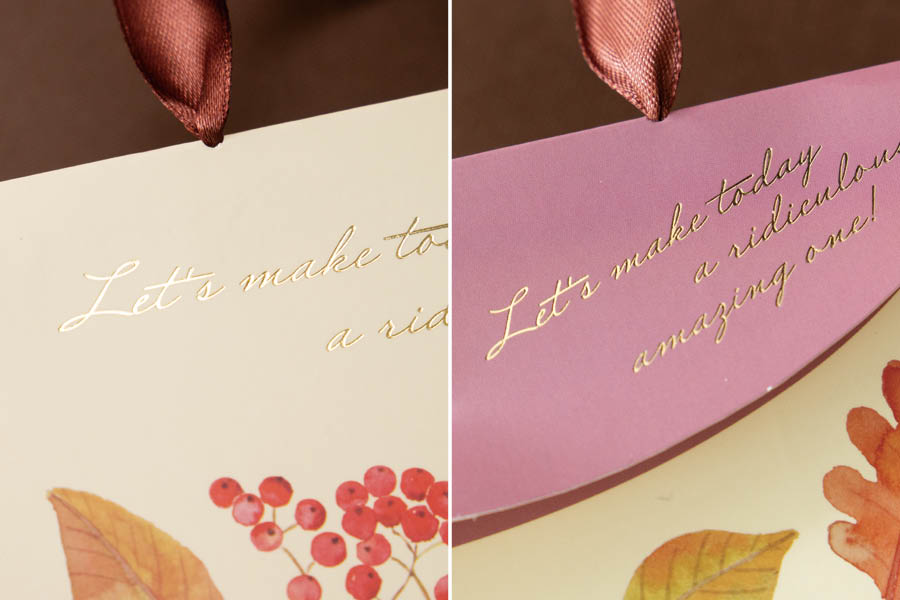 Let's make to
a rid
Let's make today
a ridiculous
amazing one!